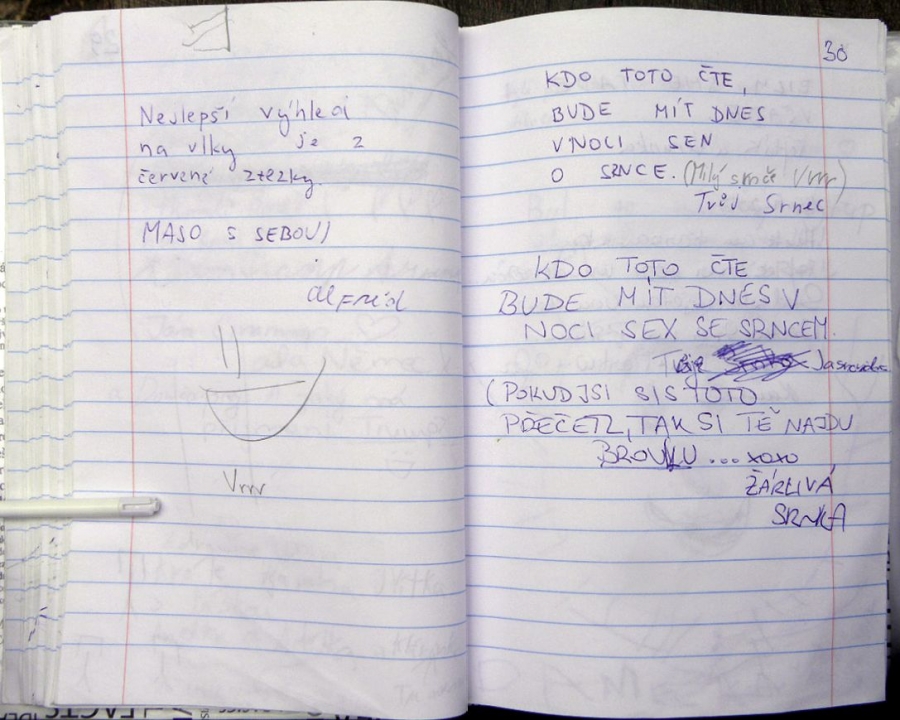 Nejlepší výhled
na vlky je z
červené stezky.
MASO S SEBOU!
Alfréd
Vrrr
30
KDO TOTO ČTE,
BUDE MÍT DNES
V NOCI SEN
O SRNCE. (Milý srnče Vrrr)
Tvůj Srnec
KDO TOTO ČTE
BUDE MÍT DNES V
NOCI SEX SE SRNCEM.
Tvoje
(POKUD JSI SIS TOTO
PŘEČETL, TAK SI TĚ NAJDU
BROUKU ... xoxo
ŽÁRLIVÁ
SRNKA